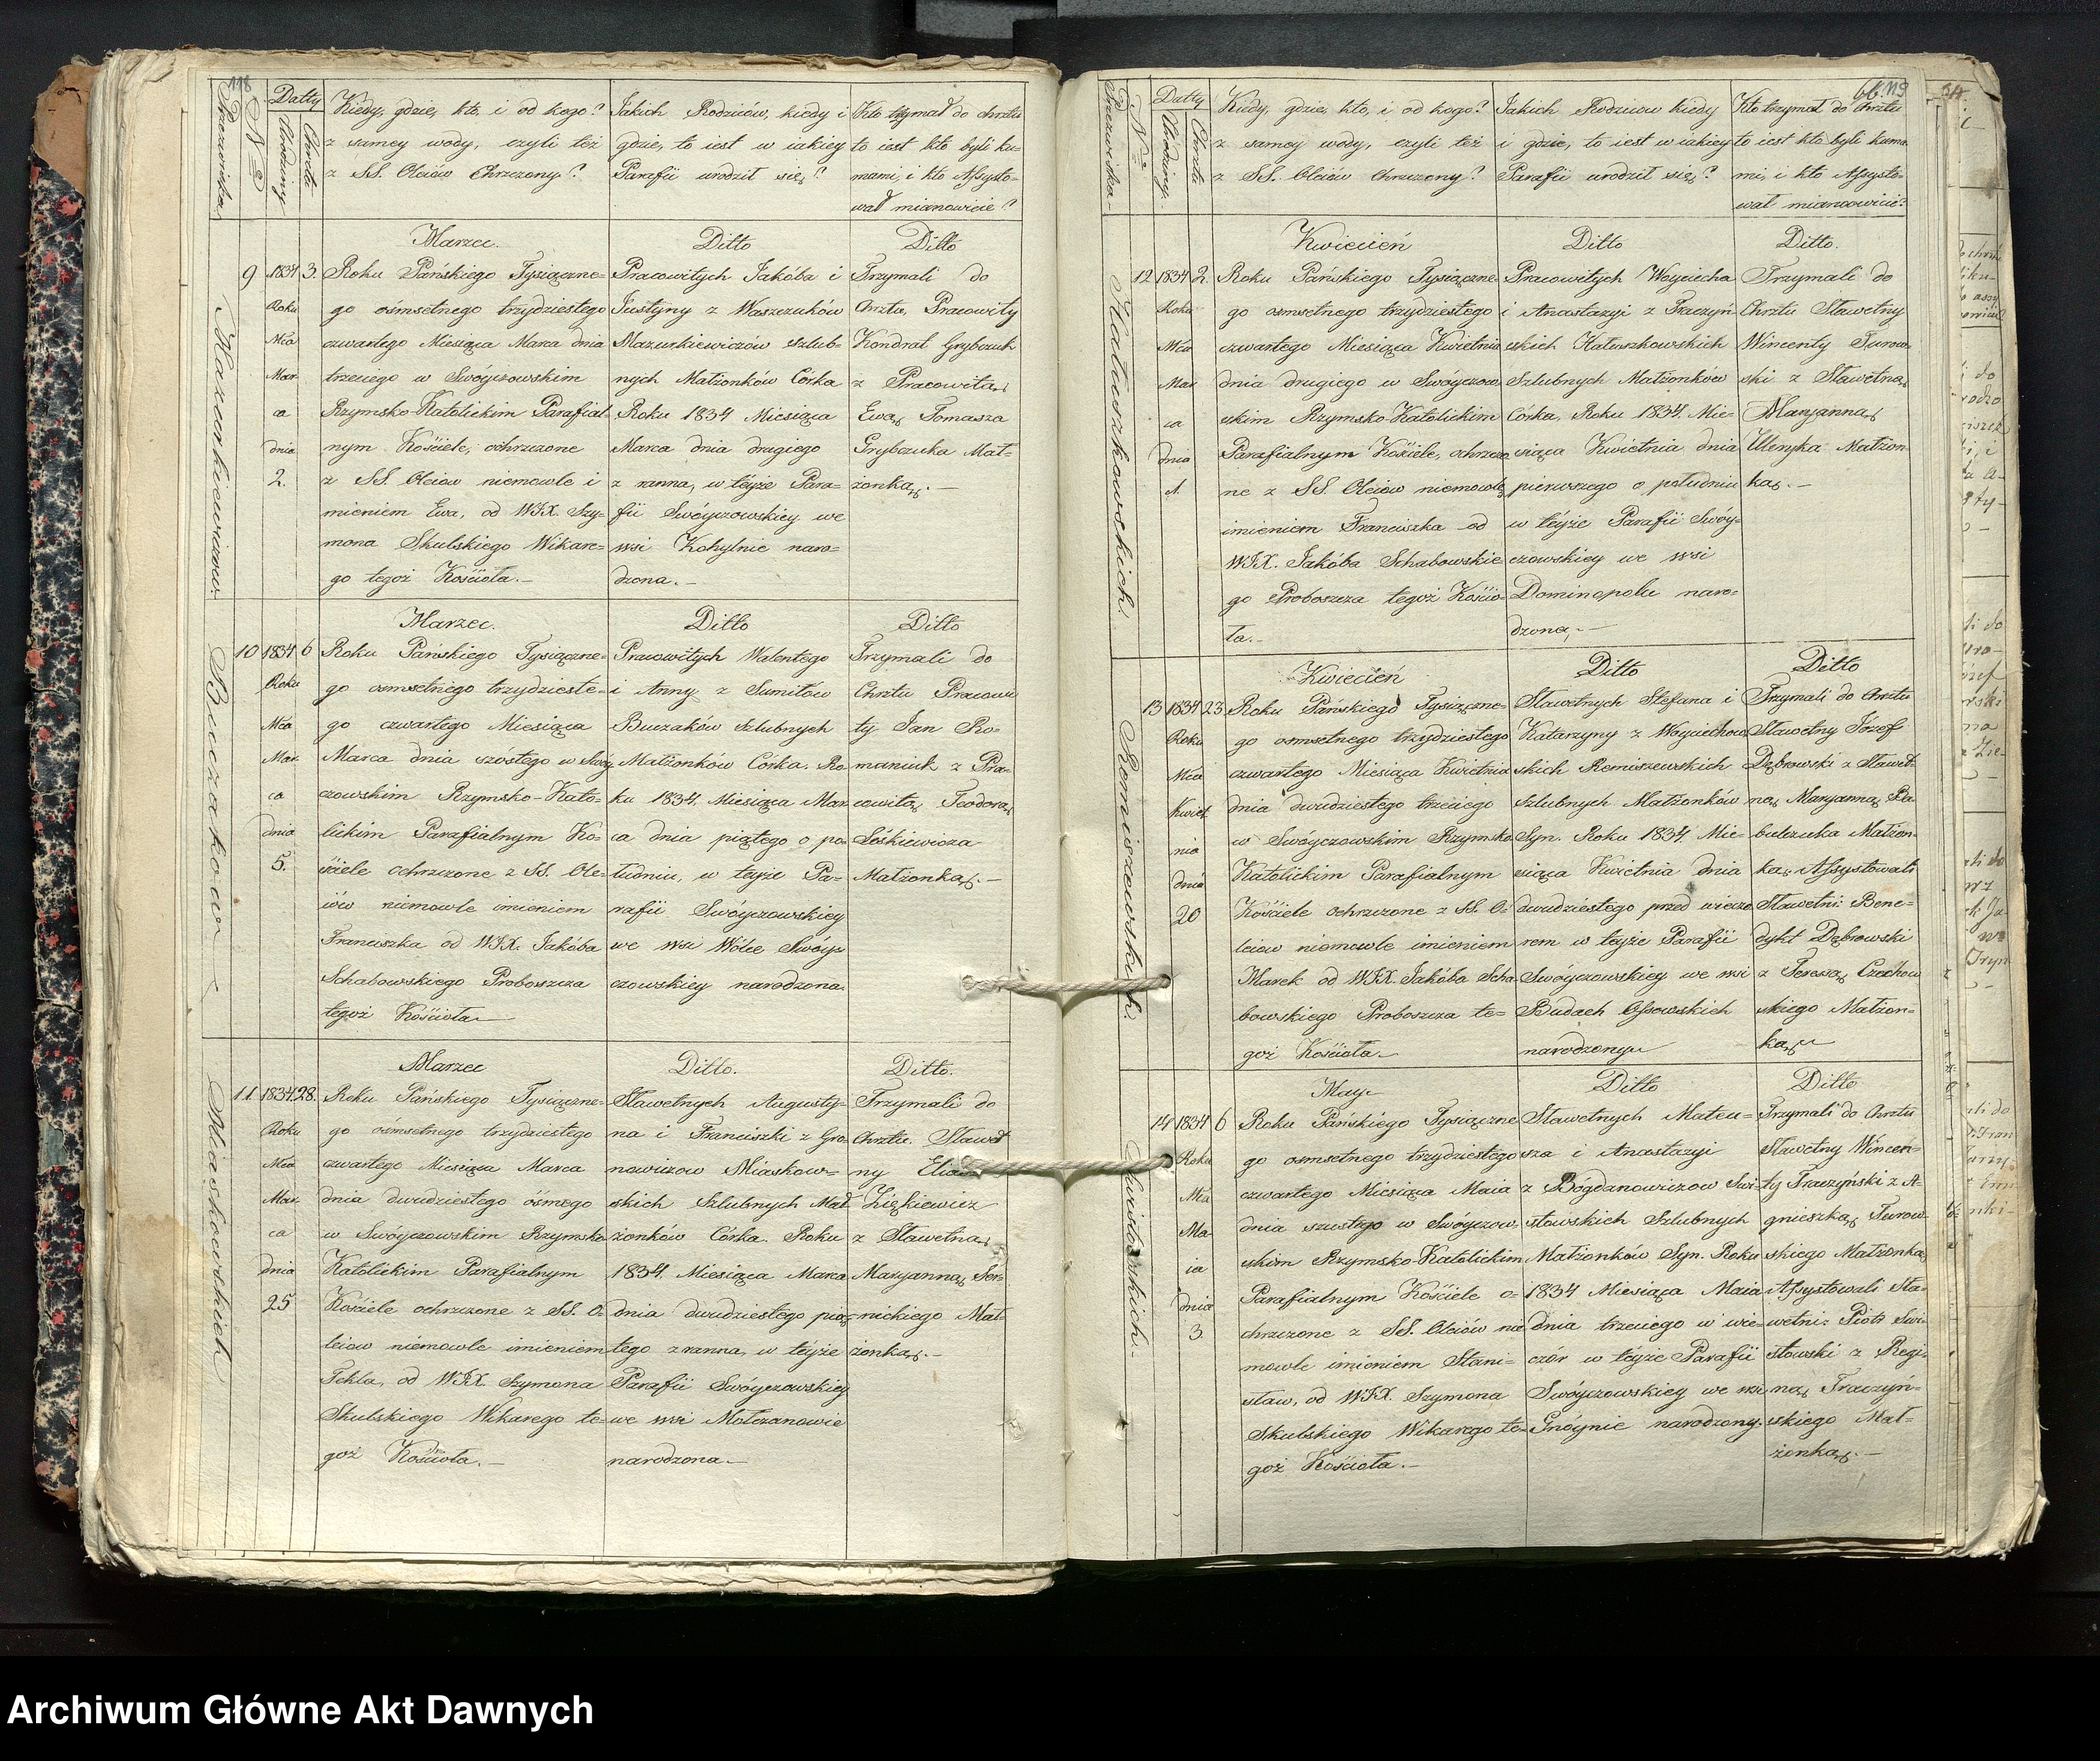 118
Przezwiska
No
Datty
Urodziny
Chrztu
Kiedy, gdzie, kto, i od kogo?
z samey wody, czyli też
z SS. Oleiów Chrzczony?
Jakich Rodziców, kiedy i
gdzie, to iest w iakiey
Parafii urodził się?
Kto trzymał do chrztu
to iest kto byli ku-
mami, i kto Assysto-
wał mianowicie?
Mazurkiewiczow
9
1834
Roku
Mca
Mar
ca
dnia
2.
3.
Marzec.
Roku Pańskiego Tysiączne-
go ośmsetnego trzydziestego
czwartego Miesiąca Marca dnia
trzeciego w Swóyczowskim
Rzymsko-Katolickim Parafial-
nym Kościele, ochrzczone
z SS. Oleiow niemowle i
mieniem Ewa, od WJX. Szy-
mona Skulskiego Wikare-
go tegoż Kościoła.-
Ditto
Pracowitych Jakóba i
Justyny z Waszczuków
Mazurkiewiczów szlub-
nych Małżonków Córka
Roku 1834 Miesiąca
Marca dnia drugiego
z ranna, w teyże Para-
fii Swóyczowskiey we
wsi Kohylnie naro-
dzona.-
Ditto
Trzymali do
Chrztu, Pracowity
Kondrat Grybczuk
z Pracowitą
Ewą Tomasza
Grybczuka Mał-
żonką.-
Buczakow
10
1834
Roku
Mca
Mar
ca
dnia
5.
6
Marzec.
Roku Pańskiego Tysiączne-
go osmsetnego trzydzieste-
go czwartego Miesiąca
Marca dnia szóstego w Swóy-
czowskim Rzymsko-Kato-
lickim Parafialnym Ko-
ściele ochrzczone z SS. Ole-
iów niemowle imieniem
Franciszka od WJX. Jakóba
Schabowskiego Proboszcza
tegoż Kościoła
Ditto
Pracowitych Walentego
i Anny z Sumiłow
Buczaków szlubnych
Małżonków Corka. Ro
ku 1834. Miesiąca Mar
ca dnia piątego o po-
łudniu, w teyże Pa-
rafii Swóyczowskiey
we wsi Wólce Swóy-
czowskiey narodzona.
Ditto
Trzymali do
Chrztu Pracowi
ty Jan Ro-
maniuk z Pra-
cowitą Teodorą
Sóśkiewicza
Małżonką.-
Miaskowskich
11
1834
Roku
Mca
Mar
ca
dnia
25
28.
Marzec
Roku Pańskiego Tysiączne-
go ośmsetnego trzydziestego
czwartego Miesiąca Marca
dnia dwudziestego ósmego
w Swóyczowskim Rzymsko
Katolickim Parafialnym
Kościele ochrzczone z SS. O-
leiow niemowle imieniem
Tekla, od WJX. Szymona
Skulskiego Wikarego te-
goż Kościoła.-
Ditto.
Sławetnych Augusty-
na i Franciszki z Gro-
nowiczow Miaskow-
skich Szlubnych Mał-
żonków Córka. Roku
1834. Miesiąca Marca
dnia dwudziestego pią-
tego z ranna, w teyże
Parafii Swóyczowskiey
we wsi Mołczanowie
narodzona.-
Ditto.
Trzymali do
Chrztu. Sławet
ny
Ziękiewicz
z Sławetną
Maryanną
nickiego Mał-
żonką.-
Przezwiska
No
Datty
Urodziny
Chrztu
Kiedy, gdzie, kto, i od kogo?
z samey wody, czyli też
z SS. Oleiów Chrzczony?
Jakich Rodziców kiedy
i gdzie, to iest w iakiey
Parafii urodził się?
Kto trzymał do Chrztu
to iest kto byli kuma
mi, i kto Assysto-
wał mianowicie?
119
Kaluszkowskich
12
1834
Roku
Mca
Mar
ca
dnia
1.
2.
Kwiecień
Roku Pańskiego Tysiączne
go osmsetnego trzydziestego
czwartego Miesiąca Kwietnia
dnia drugiego w Swóyczow
skim Rzymsko-Katolickim
Parafialnym Kościele, ochrzczo
ne z SS. Oleiow niemowlę
imieniem Franciszka od
WJX. Jakóba Schabowskie
go Proboszcza tegoż Kościo-
ła.-
Ditto
Pracowitych Woyciecha
i Anastazyi z Traczyń
skich Kaluszkowskich
Szlubnych Małżonków
Córka, Roku 1834. Mie-
siąca Kwietnia dnia
pierwszego o południu
w teyże Parafii Swóy-
czowskiey we wsi
Dominopolu naro-
dzona.-
Ditto.
Trzymali do
Chrztu Sławetny
Wincenty Turow
ski z Sławetną
Maryanną
Małżon-
ką.-
Remiszewskich
13
1834
Roku
Mca
Kwiet
nia
dnia
20
23.
Kwiecień
Roku Pańskiego Tysiączne-
go osmsetnego trzydziestego
czwartego Miesiąca Kwietnia
dnia dwudziestego trzeciego
w Swóyczowskim Rzymsko
Katolickim Parafialnym
Kościele ochrzczone z SS. O-
leiow niemowle imieniem
Marek od WJX. Jakóba Scha-
bowskiego Proboszcza te-
goż Kościoła.-
Ditto
Sławetnych Stefana i
Katarzyny z Woyciechow
skich Remiszewskich
Szlubnych Małżonków
Syn. Roku 1834. Mie-
siąca Kwietnia dnia
dwudziestego przed wieczo
rem w teyże Parafii
Swóyczowskiey we wsi
Budach Ossowskich
narodzony
Ditto
Trzymali do Chrztu
Sławetny Józef
Dąbrowski z Sławet-
ną Maryanną Ba
bulczuka Małżon-
ką Assystowali
Sławetni: Bene-
dykt Dąbrowski
z Teresą Czechow
skiego Małżon-
ką
Swisłowskich.
14
1834
Roku
Mca
Ma
ia
dnia
3.
6
May
Roku Pańskiego Tysiączne
go osmsetnego trzydziestego
czwartego Miesiąca Maia
dnia szustego w Swóyczow
skim Rzymsko-Katolickim
Parafialnym Kościele o-
chrzczone z SS. Oleiów nie
mowle imieniem Stani-
sław, od WJX. Szymona
Skulskiego Wikarego te-
goż Kościoła.-
Ditto
Sławetnych Mateu-
sza i Anastazyi
z Bógdanowiczow Swi-
słowskich Szlubnych
Małżonków Syn. Roku
1834 Miesiąca Maia
dnia trzeciego w wie-
czór w teyże Parafii
Swóyczowskiey we wsi
Gnóynie narodzony.
Ditto
Trzymali do Chrztu
Sławetny Wincen-
ty Traczyński z A-
gnieszką Turow-
skiego Małżonką
Assystowali Sła-
wetni: Piotr Swi-
słowski z Regi-
ną Traczyń-
skiego Mał-
żonką.-
Archiwum Główne Akt Dawnych